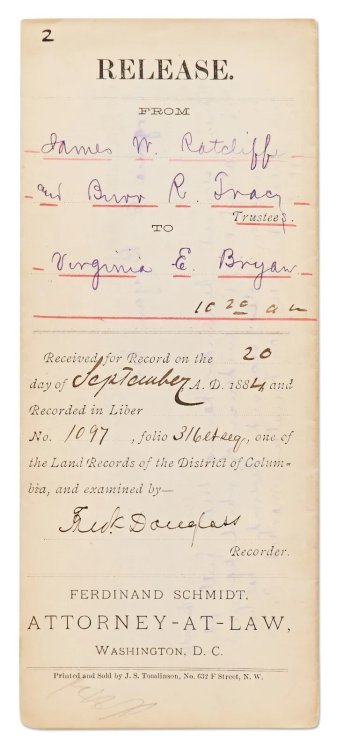 2
RELEASE.
FROM
James W. Ratcliff
and Burr R. Tracy
Trustees.
TO
Virginia E. Bryan
10 20 a m
Received for Record on the 20
day of September A. D. 1884, and
Recorded in Liber
No. 1097, folio 316 et seq., one of
the Land Records of the District of Colum-
bia, and examined by—
Fredk Douglass
Recorder.
FERDINAND SCHMIDT,
ATTORNEY-AT-LAW,
WASHINGTON, D. C.
Printed and Sold by J. S. Tomlinson, No. 632 F Street, N. W.